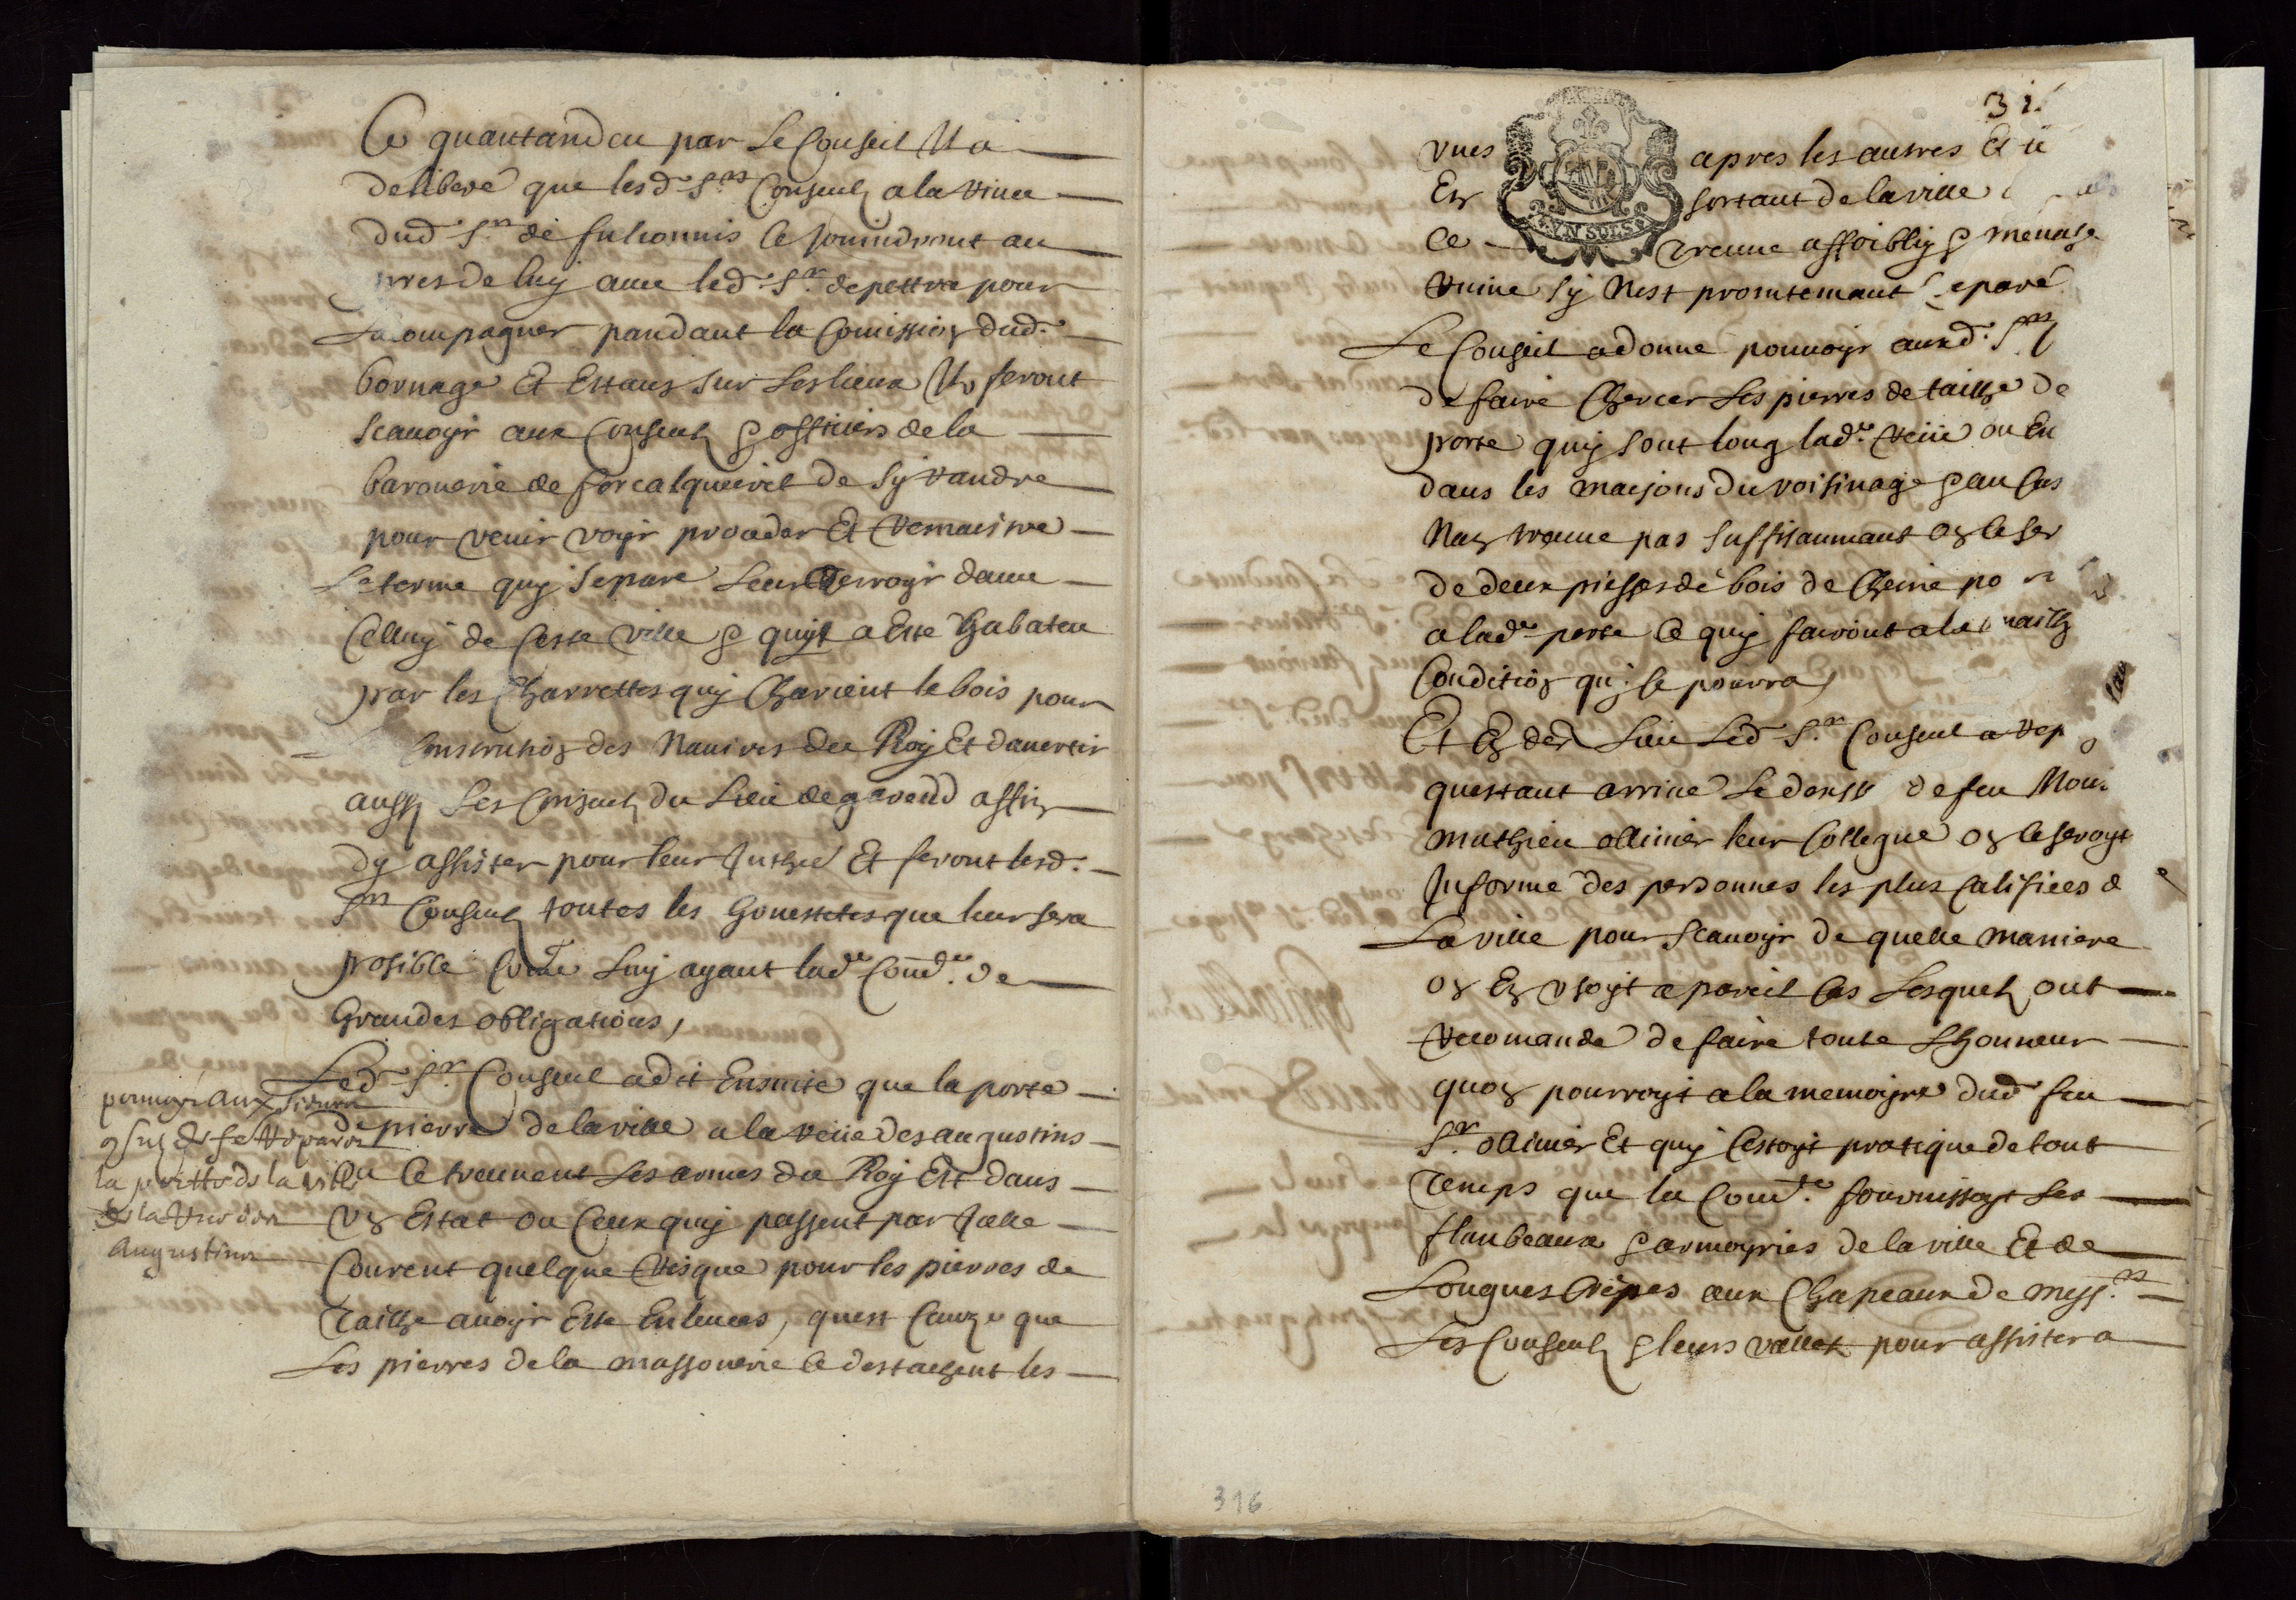 Ce quantandeu par Le Conseil Il a
deliberé que lesd. Srs Conseulz a la venue
dud Sr de fulconnis Ce Joindront au
pres de luy avec led. Sr depettra pour
Lacompagner pandant la Comission dud.
bornage Et Estans sur Les lieux Ils feront
scavoyr aux Conseulz & offitiers de la
baronerie de forcalqueiret de sy randre
pour venir voyr proceder Et Remaistre
Le terme quy separe Leur Terroyr dauec
Celluy de Ceste ville & quyt a Este habateu
par les Charrettes quy Charient le bois pour
Constrution des Navires du Roy Et davertir
aussy Les Conseulz du Lieu de gareoud affin
dy assister pour leur Inthre Et feront lesd.
Srs Conseulz toutes les honestetes que leur sera
posible Comme Luy ayant lade Comd.e de
Grandes obligations,
Led Sr Conseul a dit Ensuite que la porte
de pierre de la ville a la Reue des augustins
Ou Ce treuvent Les armes du Roy Est dans
un Estat ou Ceux quy passent par Jcelle
Courent quelque Risque pour les pierres de
Taille avoyr Este Enlevees, quest Cauze que
Les pierres de la massonerie Ce destachent les
pouvoyr aux sieurs
consulz de fe Reparer
la portte de la ville
de la Rue des
Augustins
31.
unes apres les autres Et
En sortant de la ville
Ce treuve affoibly & menase
Ruine sy Nest promtemant separé
Le Conseil a donné pouvoyr auxd. Srs
de faire Chercer Les pierres de taille de
porte quy sont long lad.e Reue ou En
dans les maisons du voisinage & au Cas
Nan trouve pas suffisaumant on Ce ser
de deux piesses de bois de Cheine po
a lade porte Ce quy fairont a la mailh
Condition quy se pourra,
Et En der Lieu Led Sr Conseul a Rep
questant arrivé Le desses de feu Mon
mathieu ollivier leur Collegue on Ce seroyt
Informé des personnes les plus Califiees de
La ville pour scavoyr de quelle maniere
on En usoyt a pareil Cas Lesquelz ont
Recomande de faire toute Lhonneur
quon pourroyt a la memoyre dud feu
Sr ollivier Et quy Cestoyt pratique de tout
Temps que la Comd.e fournissoyt Les
flanbeaux & armoyries de la ville Et de
Longues Crepes aux Chapeaux de mess.rs
Les Conseulz & leurs vallet pour assister a
316